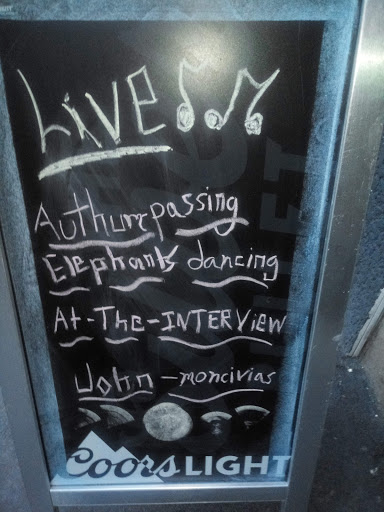 LIVE
Authumn passing
Elephants dancing
At-The-INTERView
John - moncivias
Coors LIGHT